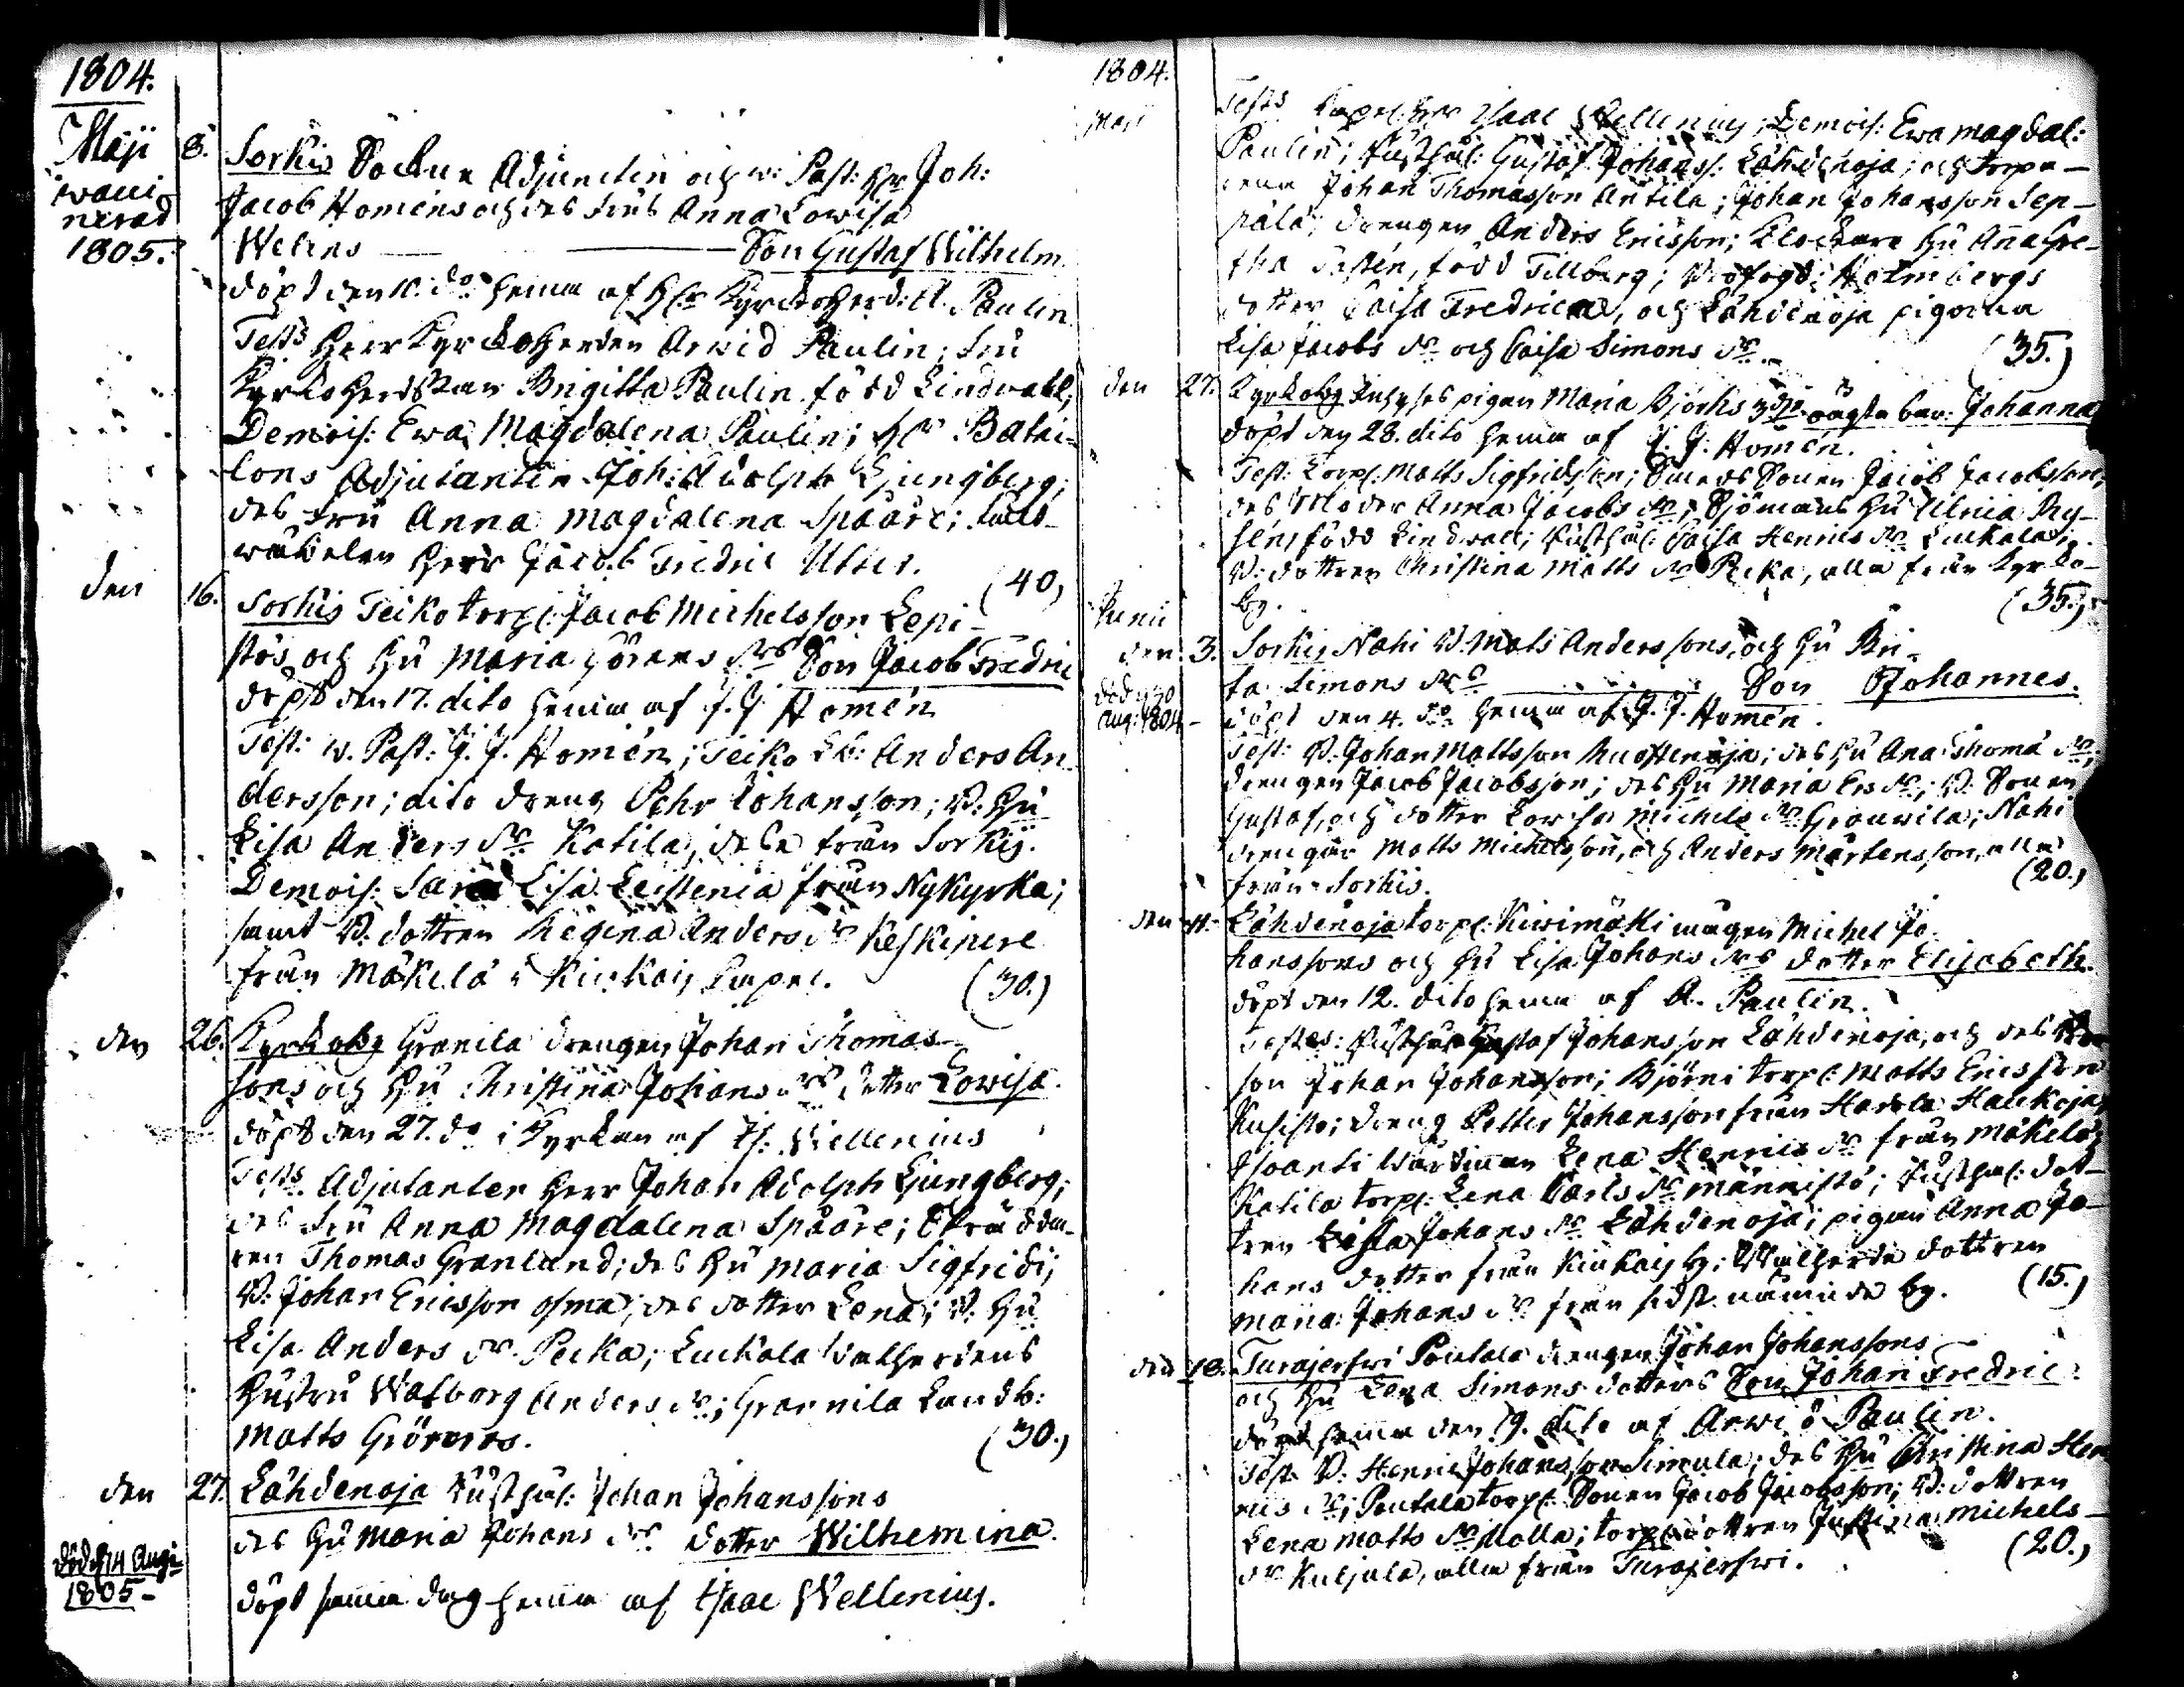 1804.
Maji 8. Sorkis Socknε Adjuncten och w: Past: Hr Joh:
Jacob Homéns och des Frus Anna Lowisa
Welins Son Gustaf Wilhelm
vacci
nerad
1805.
döpt den 10. do hemma af H:r Kyrckoherd: A. Paulin
Tests Herr Kyrckoherden Arwid Paulin; Fru
Kyrckoherdskan Brigitta Paulin född Lindwall;
Demois: Ewa Magdalena Paulin; H:r Batail-
lons Adjutanten Joh: Adolph Ljungberg;
des Fru Anna Magdalena Spåäre;
Herr Jacob Fredric Uter. (40)
den 16. Sorkis Teiko torp: Jacob Michelsson Lepi-
stös och Hu Maria Görans drs Son Jacob Fredric
döpt den 17. dito hemma af J. J. Homén
Test: w. Past: J. J. Homén; Teiko Lb: Anders An-
dersson; dito dreng Pehr Johansson; B. Hu
Lisa Anders dr Katila, desse från Sorkis.
Demois: Sara Lisa Leistenia från Nykyrka;
samt B. dottren Regina Anders dr Keskipere
från Mäkelä i Kiukais Capel. (30.)
den 26. Kyrkoby Granila drengen Johan Thomas-
sons och Hu Christina Johans drs dotter Lowisa.
döpt den 27. do i Kyrkan af Is: Wellenius
Tests Adjutanten Herr Johan Adolph Ljungberg;
des Fru Anna Magdalena Spåäre; Skrädda-
ren Thomas Granlund; des Hu Maria Sigfridi;
B. Johan Ericsson Osma; des dotter Lena; B. Hu
Lisa Anders dr Pecka; Luckala
Hustru Walborg Anders dr; Grannila Landb:
Matts Görans. (30.)
den 27. Lähdenoja Rusthål: Johan Johanssons
des Hu Maria Johans drs dotter Wilhemina.
död d 14 Augi
1805-
döpt samma dag hemma af Isaac Wellenius.
1804.
Maji
Tests Capel: Hr Isaac Wellenius; Demois: Ewa Magdal:
Paulin; Rusthål: Gustaf Johanss: Lähdenoja; och torpa-
rena Johan Thomasson Antila; Johan Johansson Sep-
pälä; drengen Anders Ericsson; Klockare Hu Anna Gre-
tha född Tillberg; Holmbergs
dotter Caisa Fredrica, och Lähdenoja pigorna
Lisa Jacobs dr och Caisa Simons dr. (35.)
den 27. Kyrkoby Inhyses pigan Maria Björks oägta barn: Johanna
döpt den 28. dito hemma af J. J. Homén.
Test: Corpl: Matts Sigfridsson; Smeds Sonen Jacob Jacobsson;
des Moder Anna Jacobs dr; Sjömans Hu Ulrica Ry-
sén, född Lindwall; Rusthål: Caisa Henrics dr Luckala;
B: dottren Christina Matts dr Pecka, alla från Kyrko-
by. (35.)
Junii
den 3. Sorkis Nahi B. Mats Anderssons, och Hu Bri-
ta Simons drs Son Johannes.
död d 30
Aug: 1804-
döpt den 4. do hemma af J. J. Homén.
Test: B. Johan Mattsson Ruohenoja; des Hu Ana Thoma dr;
drengen Jacob Jacobsson; des Hu Maria Ers dr; B. Sonen
Gustaf, och dotter Lowisa Michels dr Grouwila; Nahi
drengar Matts Michelsson, och Anders Mårtensson, alla
från Sorkis. (20.)
den 11. Lähdenoja torp: Kiwimäki mågen Michel Jo-
hanssons och Hu Lisa Johans drs dotter Elisabeth.
döpt den 12. dito hemma af A. Paulin.
Testes: Rusthål: Gustaf Johansson Lähdenoja, och des
son Johan Johansson; Björni torp: Matts Ericsson
Kusisto; dreng Petter Johansson från Harola Haukoja;
Lena Henrics dr från Mäkelä;
Katila torp: Lena Carls dr Männistö; Rusthål: dot-
tren Lisa Johans dr Lähdenoja; pigan Anna Jo-
hans dotter från Kiukais by; dottren
Maria Johans dr från sidst nämnde by. (15.)
den 18. Turajerfwi Poutala drengen Johan Johanssons
och Hu Lena Simons dotters Son Johan Fredric
döpt hemma den 19. dito af Arwid Paulin.
Test. B. Henric Johansson Simula; des Hu Christina Hen-
rics dr; Pautala torp: Sonen Jacob Jacobsson; B: dottren
Lena Matts dr Molla; torp: dottren Justina Michels-
dr Kuljala, alla från Turajerfwi. (20.)